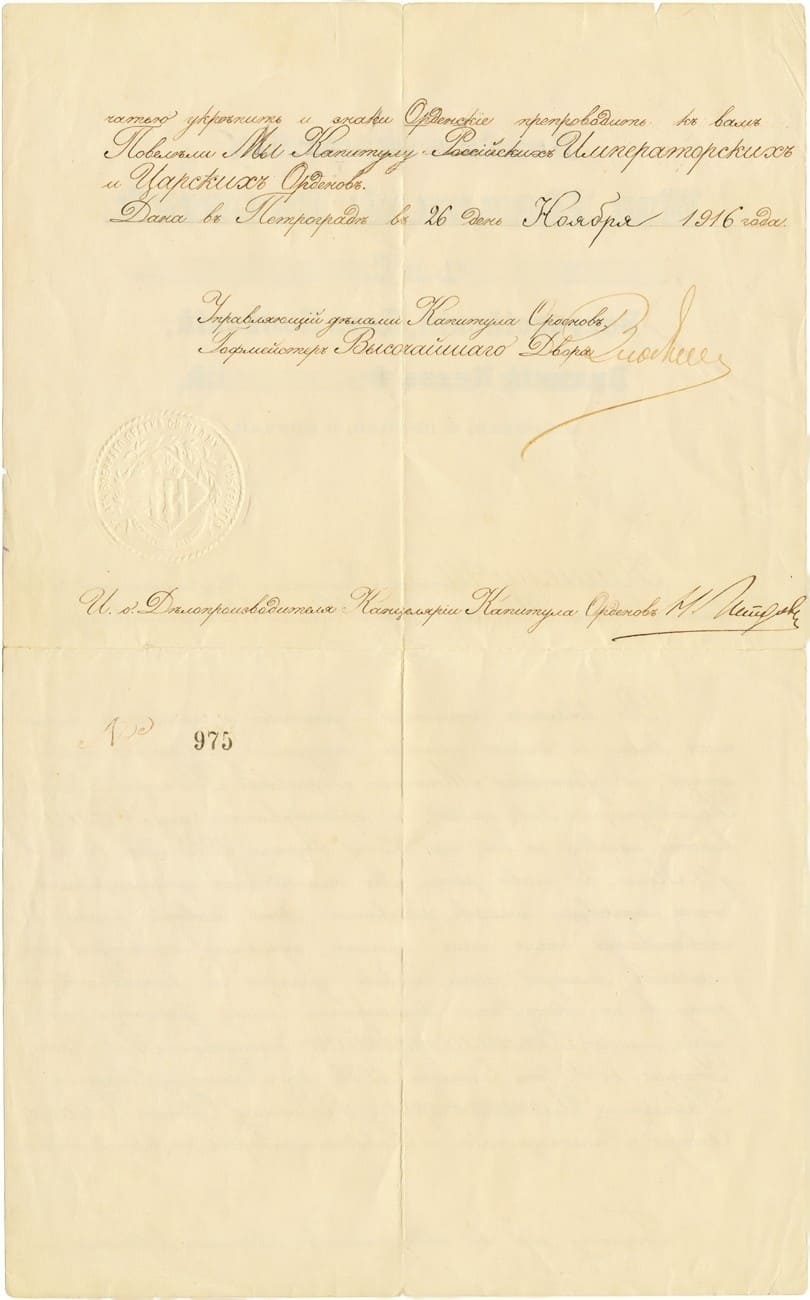 чатью укрѣпить и знаки Орденскіе препроводить къ вамъ
Повелѣли Мы Капитулу Россійскихъ Императорскихъ
и Царскихъ Орденовъ.
Дана въ Петроградѣ въ 26 день Ноября 1916 года.
Управляющій дѣлами Капитула Орденовъ,
Гофмейстеръ Высочайшаго Двора
И. о. Дѣлопроизводителя Канцеляріи Капитула Орденовъ
№ 975